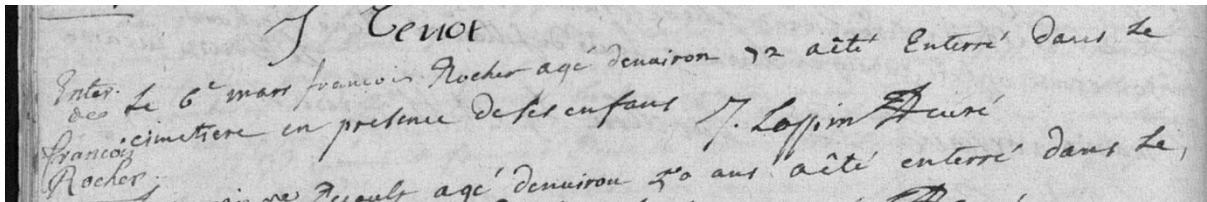 J Tenot
Enter.
de
françois
Rocher.
Le 6e mars françois Rocher agé denuiron 72 aêté Enterré dans Le
cimetiere en presence de ses enfans J. Loppin curé
agé denuiron 50 ans aêté enterré dans Le